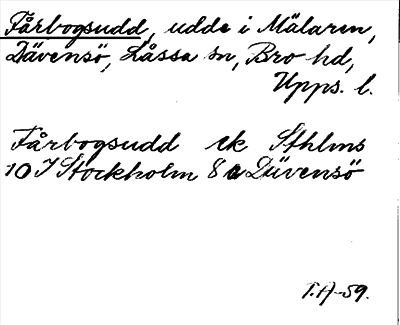 Fårbogsudd, udde i Mälaren,
Dävensö, Låssa sn, Bro hd,
Upps. l.
Fårbogsudd ek Sthlms
10 I Stockholm 8 a Dävensö
T.A-59.